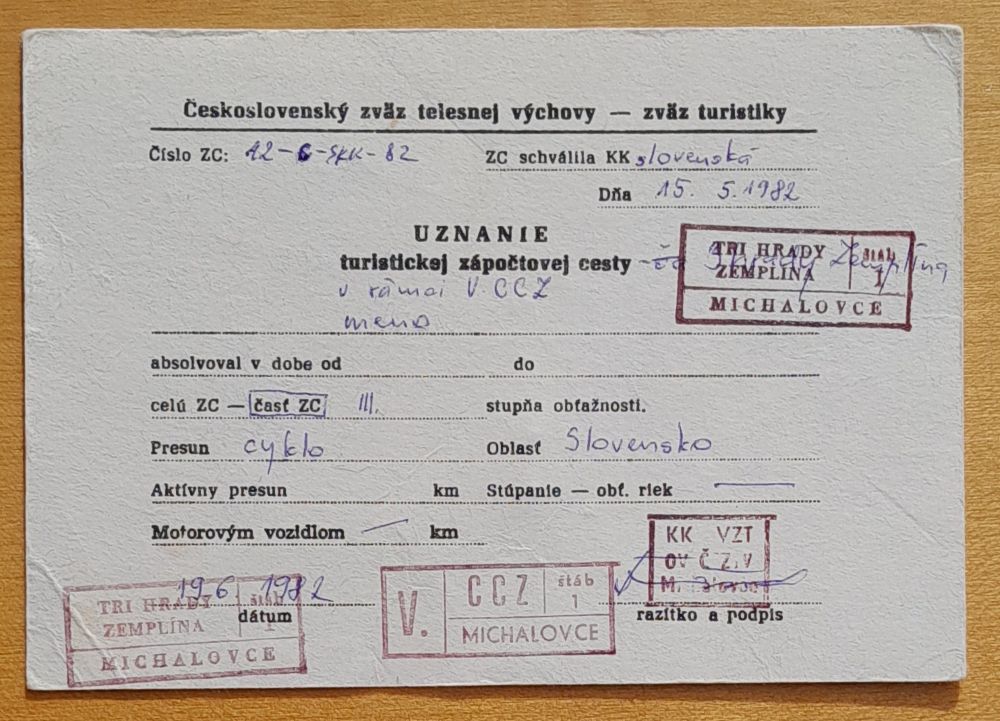 Československý zväz telesnej výchovy — zväz turistiky
Číslo ZC: 12-C-SKK-82 ZC schválila KK slovenská
Dňa 15. 5. 1982
UZNANIE
turistickej zápočtovej cesty 3 hrady Zemplína
TRI HRADY štáb
ZEMPLÍNA 1
MICHALOVCE
v rámci V. CCZ
meno
absolvoval v dobe od do
celú ZC — časť ZC III. stupňa obťažnosti.
Presun cyklo Oblasť Slovensko
Aktívny presun km Stúpanie — obť. riek
Motorovým vozidlom km
KK VZT
OV ČZTV
M.
19.6 1982
dátum
razítko a podpis
TRI HRADY štáb
ZEMPLÍNA 1
MICHALOVCE
V. CCZ štáb
1
MICHALOVCE